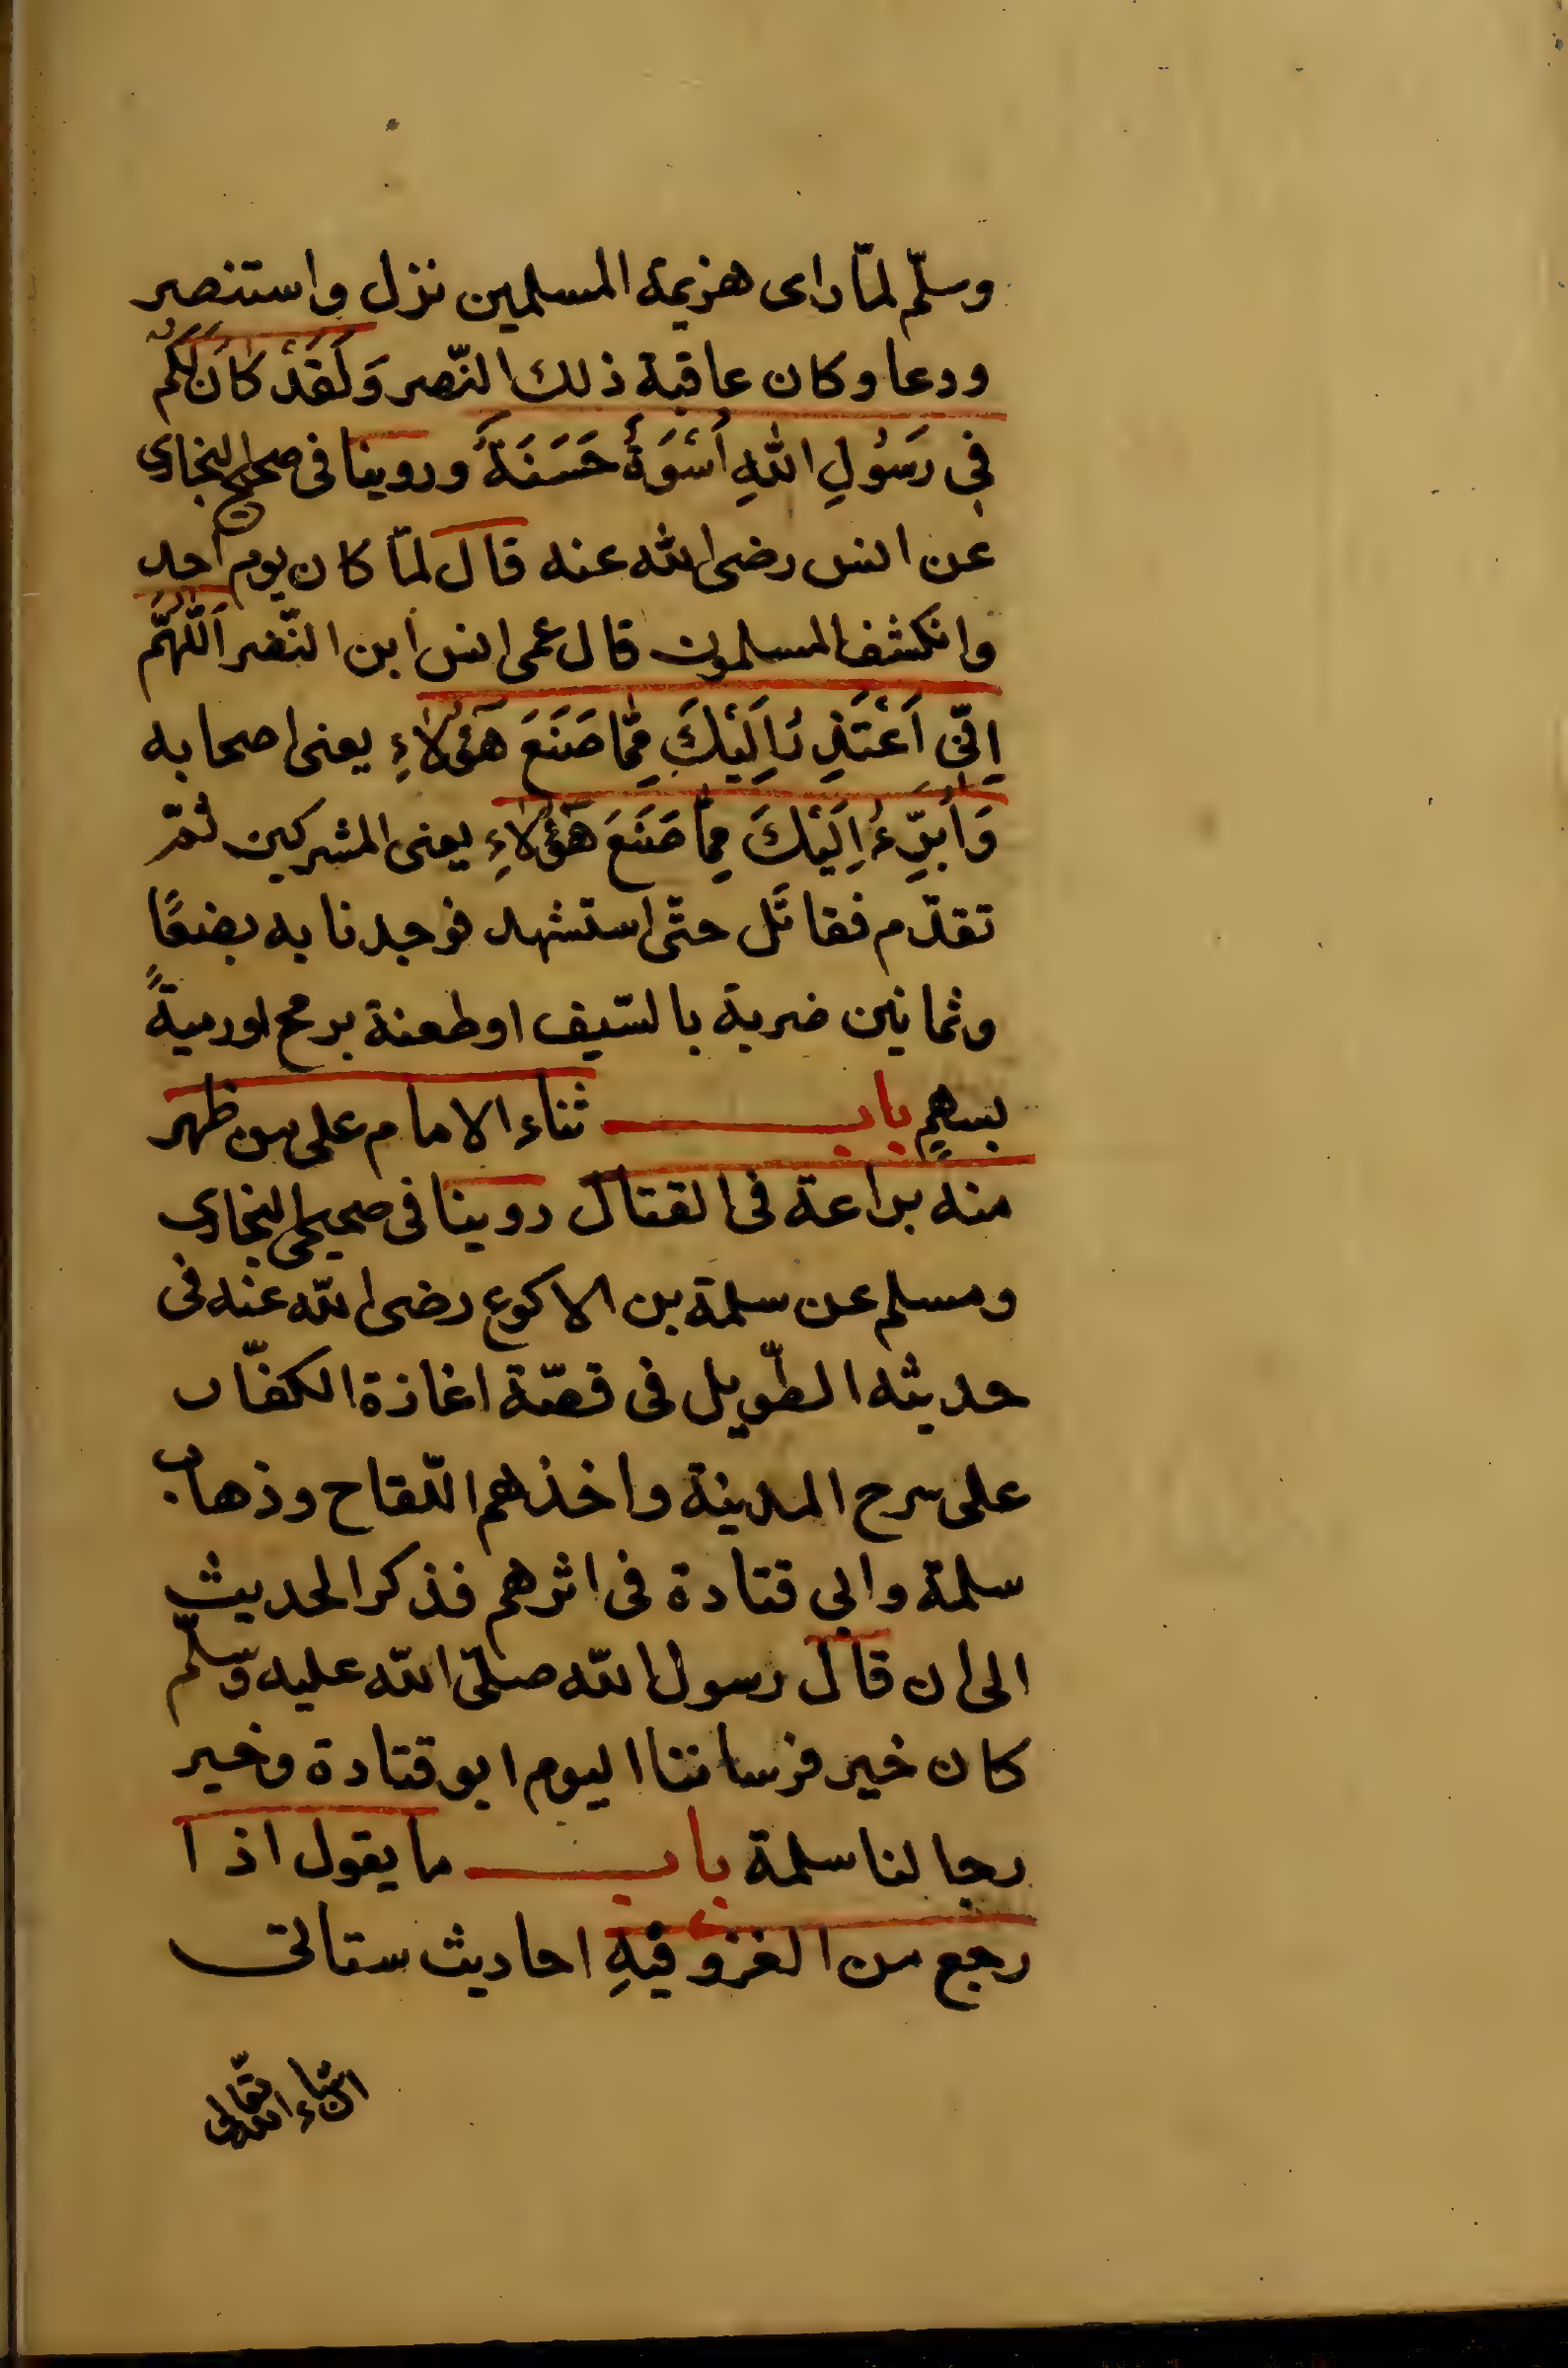 وسلّم لمّا راى هزيمة المسلمين نزل واستنصر
ودعا وكان عاقبة ذلك النّصر وَلَقَدْ كَانَ لَكُمْ
فِى رَسُولِ اللهِ اُسْوَةٌ حَسَنَةٌ وروينا فى صحيح البخارى
عن انس رضى الله عنه قال لمّا كان يوم احد
وانكشف المسلمون قال عمى انس ابن النّضر اَللّٰهُمَّ
اِنِّى اَعْتَذِرُ اِلَيْكَ مِمَّا صَنَعَ هٰٓؤُلَاءِ يعنى اصحابه
وَاَبْرَءُ اِلَيْكَ مِمَّا صَنَعَ هٰٓؤُلَاءِ يعنى المشركين ثمّ
تقدّم فقاتَل حتّى استشهد فوجدنا به بضعًا
وثمانين ضربة بالسّيف او طعنة برمح او رميةً
بسهمٍ باب ثناء الامام على من ظهر
منه براعة فى القتال روينا فى صحيحى البخارى
ومسلم عن سلمة بن الاكوع رضى الله عنه فى
حديثه الطّويل فى قصّة اغازة الكفّار
على سرح المدينة واخذهم اللّقاح وذهاب
سلمة وابى قتادة فى اثرهم فذكر الحديث
الى ان قال رسول الله صلّى الله عليه وسلّم
كان خير فرساننا اليوم ابو قتادة وخير
رجالنا سلمة باب ما يقول اذا
رجع من الغزو فيهِ احاديث ستاتى
ان شاء الله تعالى